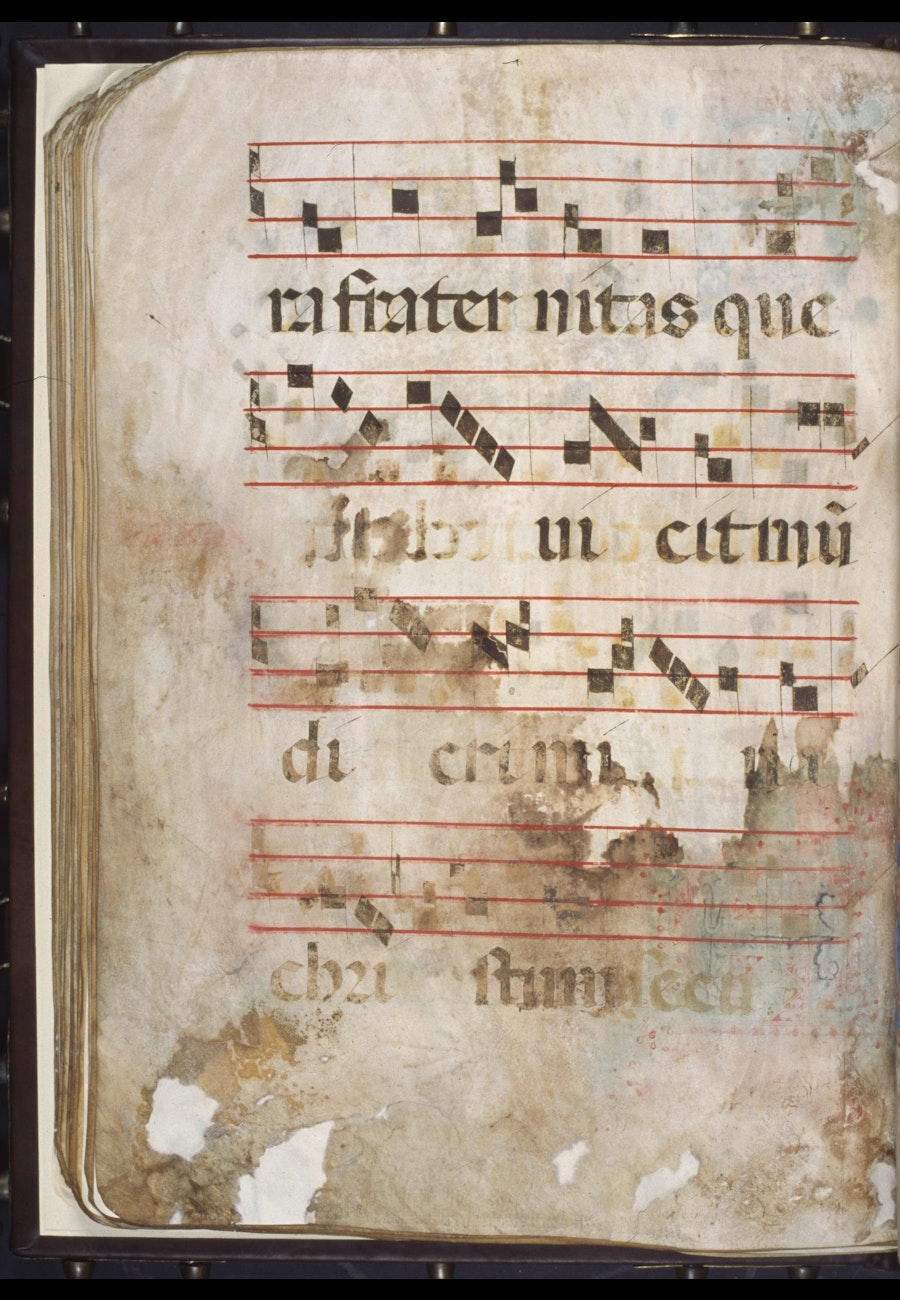 ra frater nitas que
ui cit mũ
di crimi na
chri stum secu